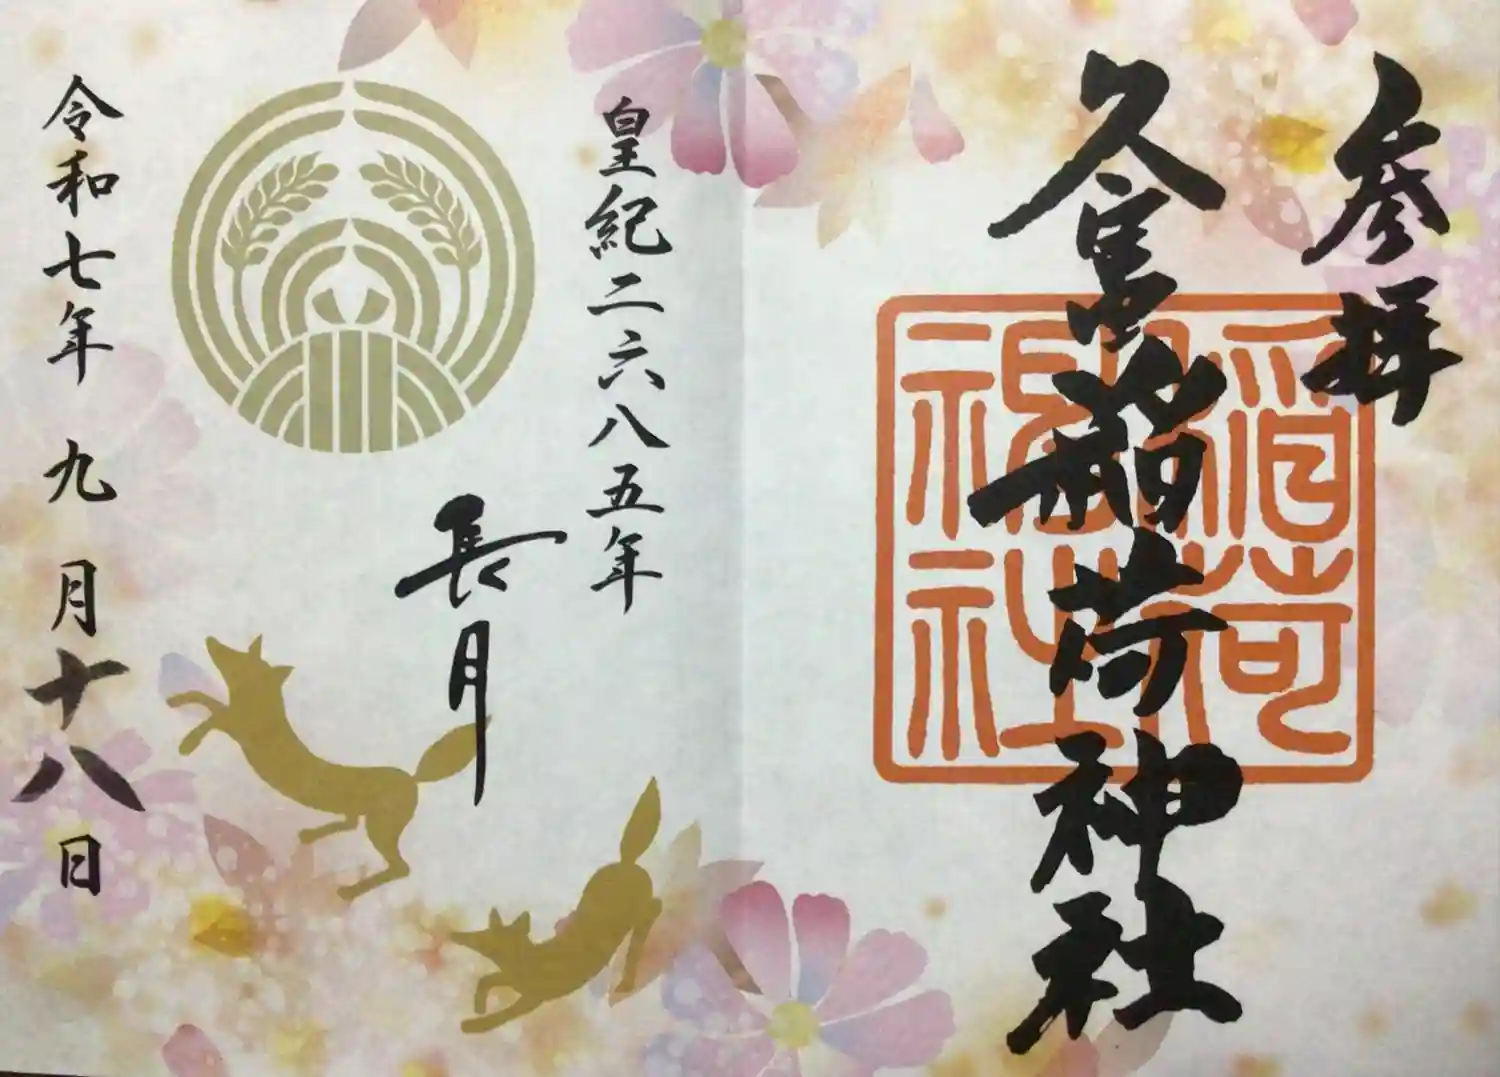 参拝
久富稲荷神社
稲荷
神社
皇紀二六八五年
長月
令和七年 九月十八日